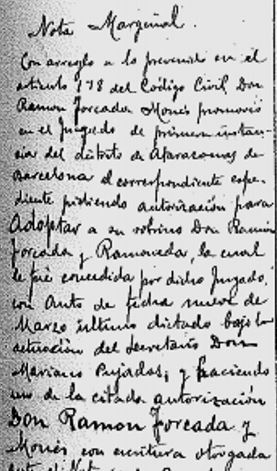 Nota Marginal.
Con arreglo a lo prevenido en el
artículo 178 del Código Civil Don
Ramon Forcada Monés promovió
en el Juzgado de primera instan-
cia del distrito de Atarazanas de
Barcelona el correspondiente espe-
diente pidiendo autorización para
Adoptar a su sobrino Don Ramon
Forcada y Ramoneda, la cual
le fué concedida por dicho Juzgado,
con Auto de fecha nueve de
Marzo último dictado bajo la
actuación del Secretario Don
Mariano Pujadas, y haciendo
uso de la citada autorización
Don Ramon Forcada y
Monés, con escritura otorgada